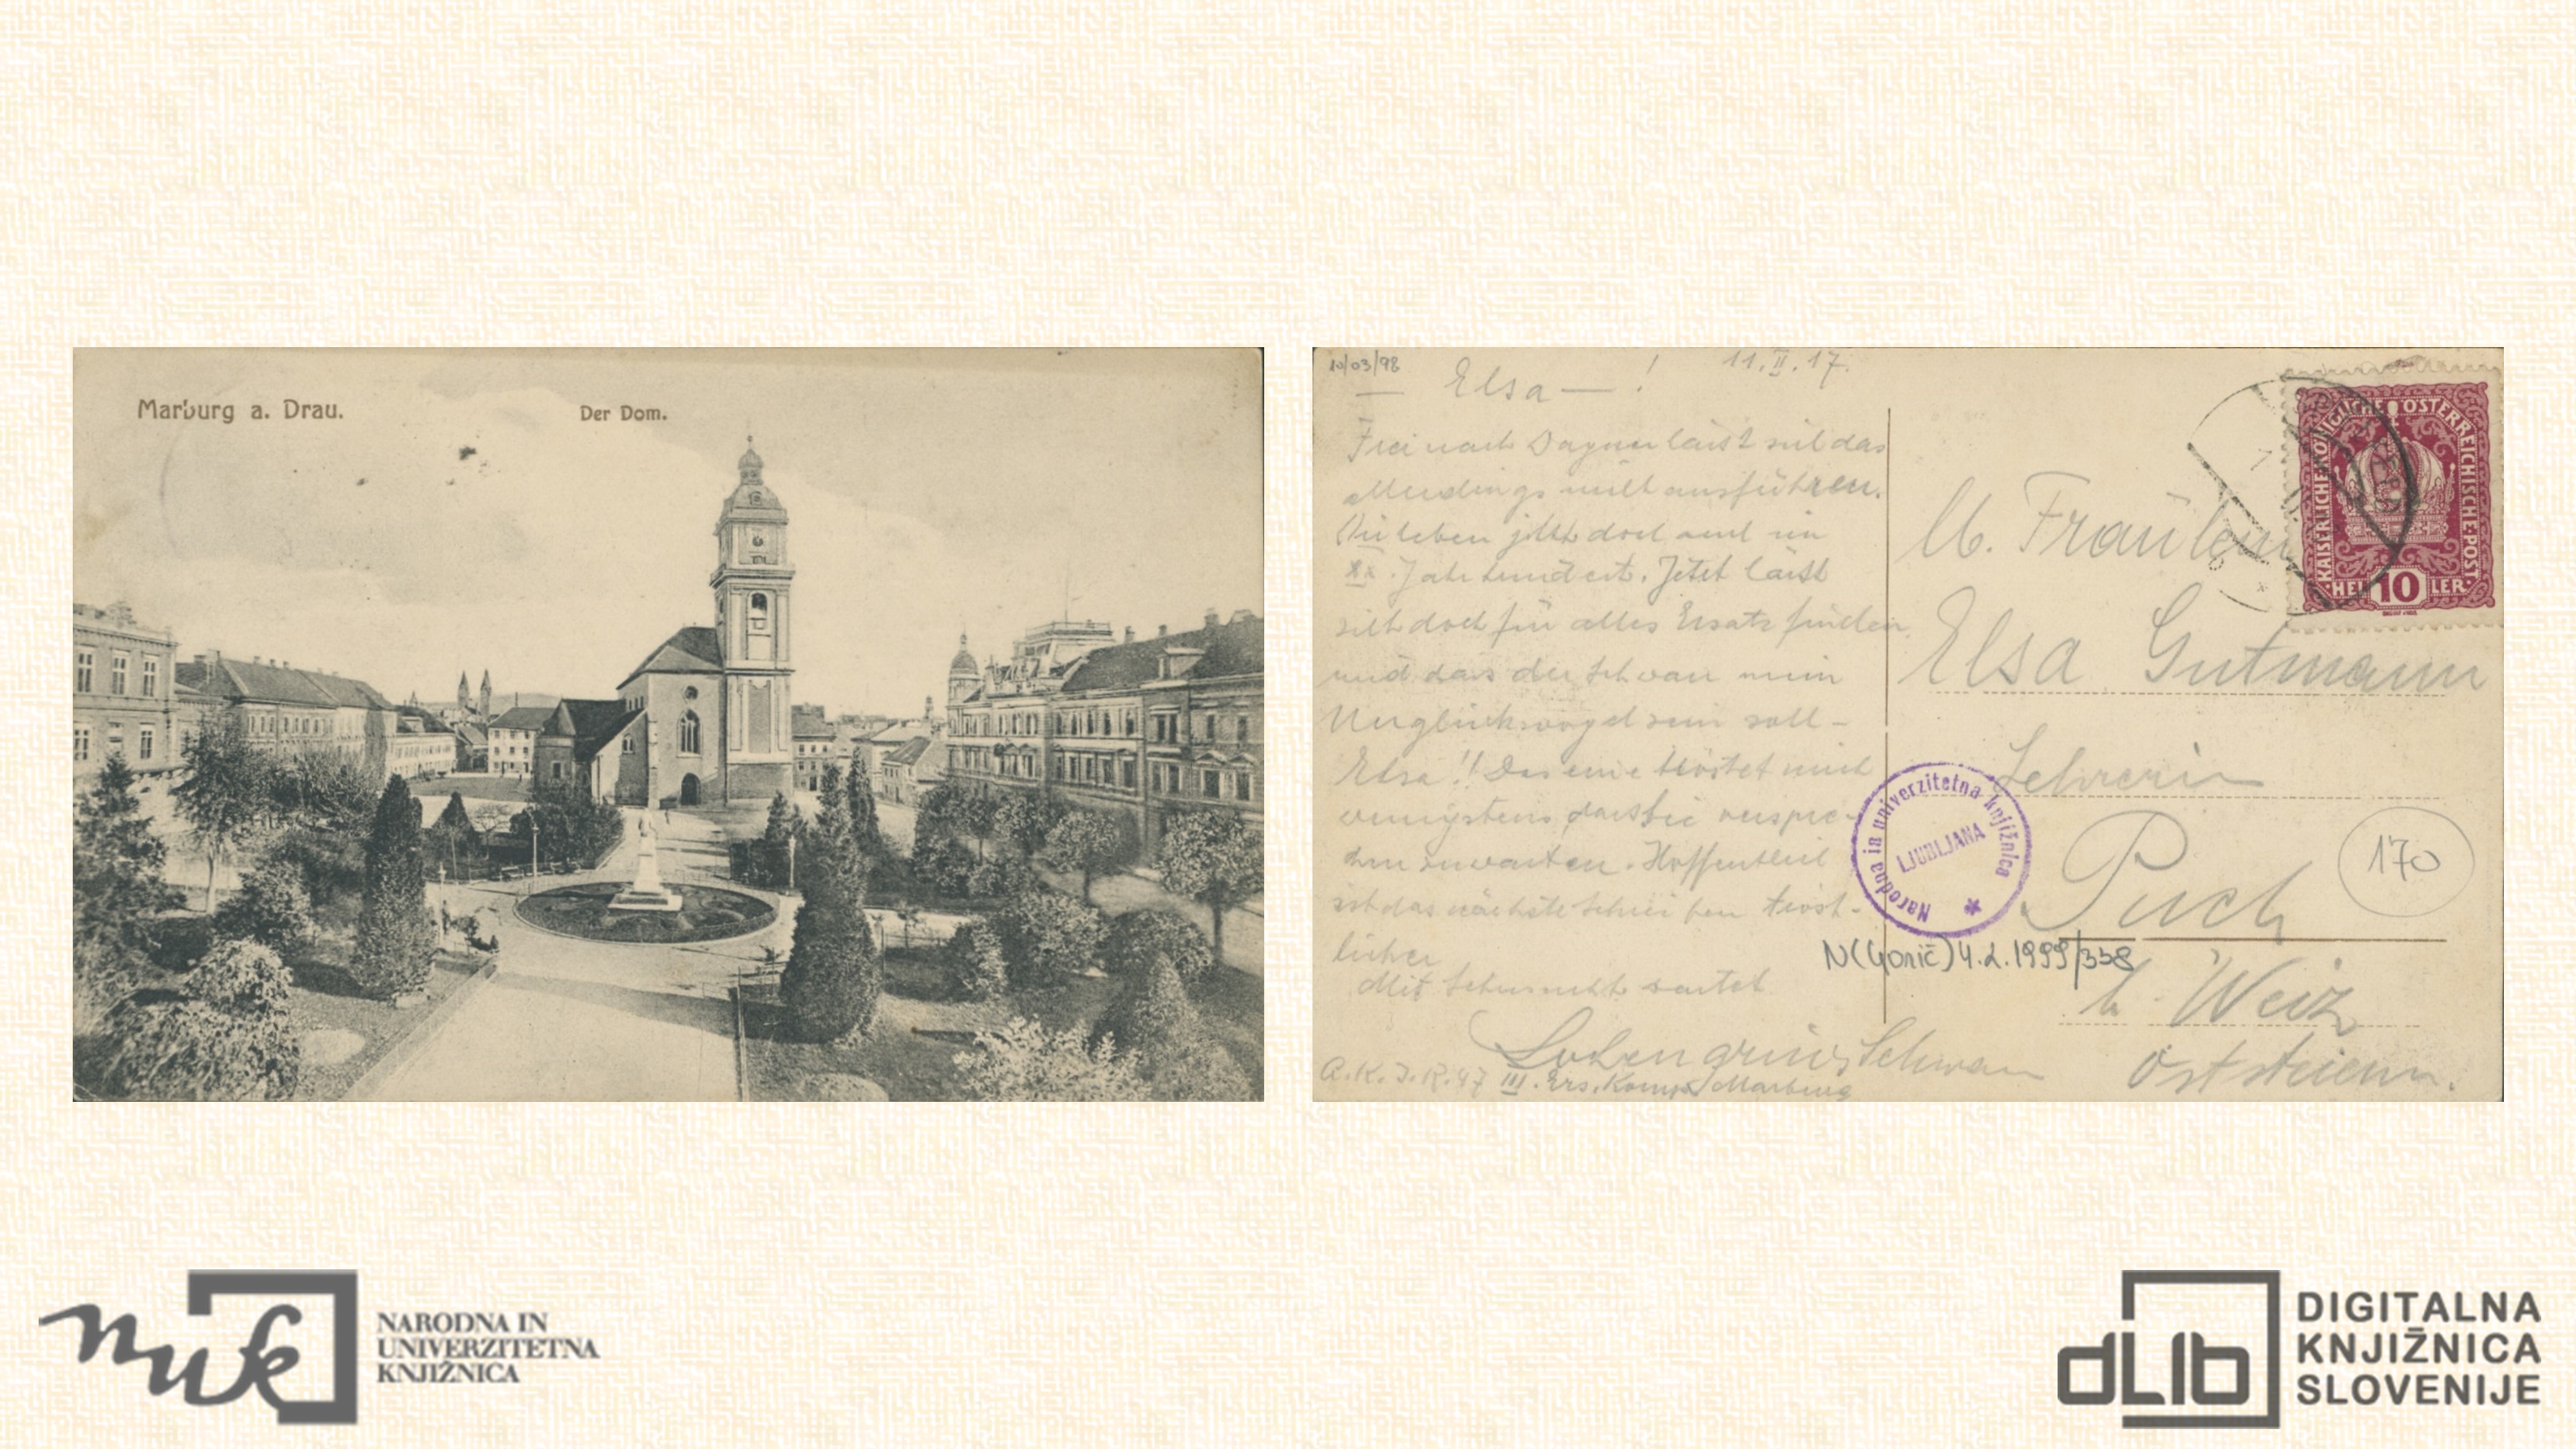 Marburg a. Drau.
Der Dom.
10/03/98
— Elsa — !
11.II.17.
Frei nach Wagner lässt sich das
allerdings nicht ausführen.
Wir leben jetzt doch auch im
XX. Jahrhundert. Jetzt lässt
sich doch für alles Ersatz finden
und dass der Schwan mein
Unglücksvogel sein soll –
Elsa!! Das eine tröstet mich
wenigstens, dass Sie verspre-
chen zu warten. Hoffentlich
ist das nächste Schreiben tröst-
licher
Mit Sehnsucht wartet
Lohengrins Schwan
A.K. I.R. 47 III. Ers. Komp. Marburg
KAISERLICHE KÖNIGLICHE ÖSTERREICHISCHE POST
HEL 10 LER
Fräulein
Elsa Gutmann
Lehrerin
Puch
b. Weiz
Oststeierm.
170
Narodna in univerzitetna knjižnica
LJUBLJANA
N(Gorič) 4.2.1999/338
nuk
NARODNA IN
UNIVERZITETNA
KNJIŽNICA
dLib
DIGITALNA
KNJIŽNICA
SLOVENIJE